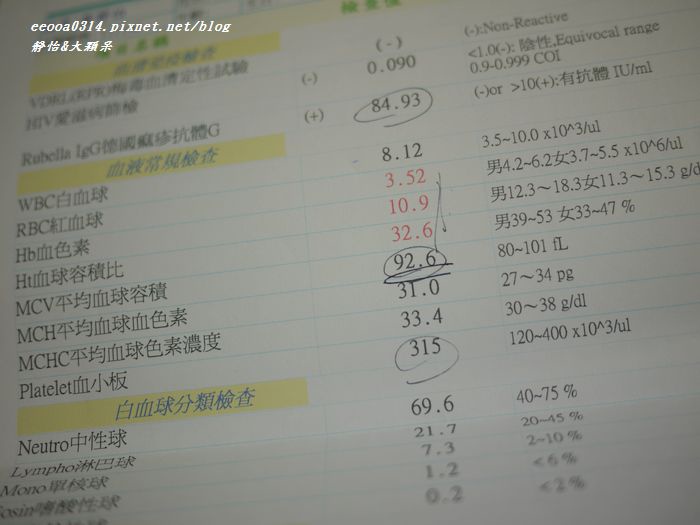 eeooa0314.pixnet.net/blog
靜怡&大顆呆
檢查值
(-):Non-Reactive
血清免疫檢查
VDRL(RPR)梅毒血清定性試驗 (-) <1.0(-): 陰性,Equivocal range
HIV愛滋病篩檢 (-) 0.090 0.9-0.999 COI
Rubella IgG德國痲疹抗體G (+) 84.93 (-)or >10(+):有抗體 IU/ml
血液常規檢查
WBC白血球 8.12 3.5~10.0 x10^3/ul
RBC紅血球 3.52 男4.2~6.2女3.7~5.5 x10^6/ul
Hb血色素 10.9 男12.3~18.3女11.3~15.3 g/d
Ht血球容積比 32.6 男39~53 女33~47 %
MCV平均血球容積 92.6 80~101 fL
MCH平均血球血色素 31.0 27~34 pg
MCHC平均血球色素濃度 33.4 30~38 g/dl
Platelet血小板 315 120~400 x10^3/ul
白血球分類檢查
Neutro中性球 69.6 40~75 %
Lympho淋巴球 21.7 20~45 %
Mono單核球 7.3 2~10 %
Eosin嗜酸性球 1.2 <6%
0.2 <2%